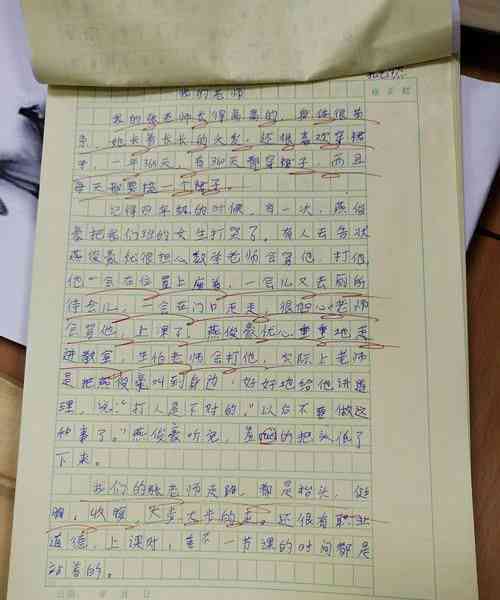 我的老师
我的张老师长得高高的，身体很苗
条，她长着长长的头发，还很喜欢穿裙
子，一年360天，有340天都穿裙子，而且
每天都要换一条裙子。
记得四年级的时候，有一次，燕俊
豪把我们班的女生打哭了。有人去告状
燕俊豪就很担心数学老师会骂他，打他，
他一会在位置上座着，一会儿又去厕所
待会儿，一会在门口走走，很担心老师
会骂他，上课了，燕俊豪忧心重重地走
进教室，生怕老师会打他，实际上老师
是把燕俊豪叫到身边，好好地给他讲道
理，说：“打人是不对的，”以后不要做这
种事了。”燕俊豪听说，羞的把头低了
下来。
我们的张老师走路，都是抬头，挺
胸，收腹，大步大步的走。还很有职业
道德，上课时，每不一节课的时间都是
站着的。